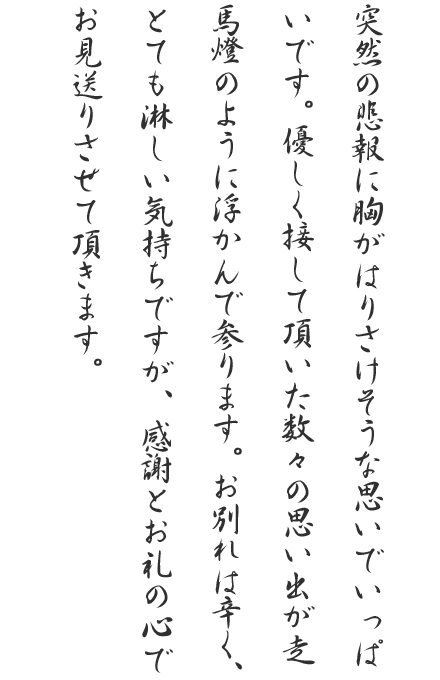 突然の悲報に胸がはりさけそうな思いでいっぱ
いです。優しく接して頂いた数々の思い出が走
馬燈のように浮かんで参ります。お別れは辛く、
とても淋しい気持ちですが、感謝とお礼の心で
お見送りさせて頂きます。